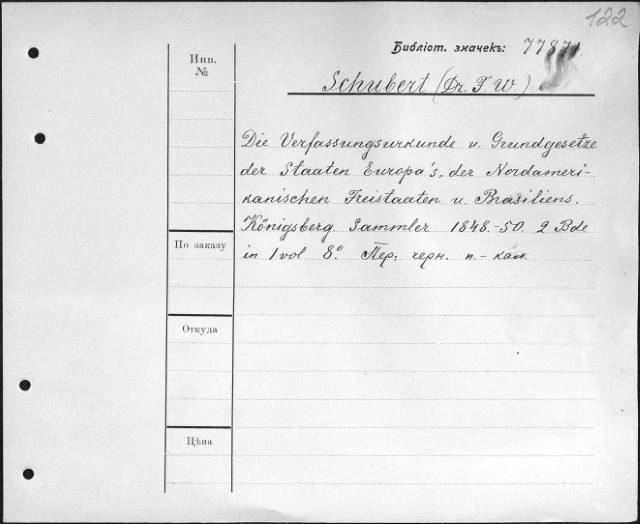 122
Библiот. значекъ: 7787
Инв.
№
Schubert (Dr. F. W.)
Die Verfassungsurkunde u. Grundgesetze
der Staaten Europa's, der Nordameri-
kanischen Freistaaten u. Brasiliens.
Königsberg. Sammler 1848.-50. 2 Bde
in 1 vol 8° Пер: черн. п.-кал.
По заказу
Откуда
Цѣна